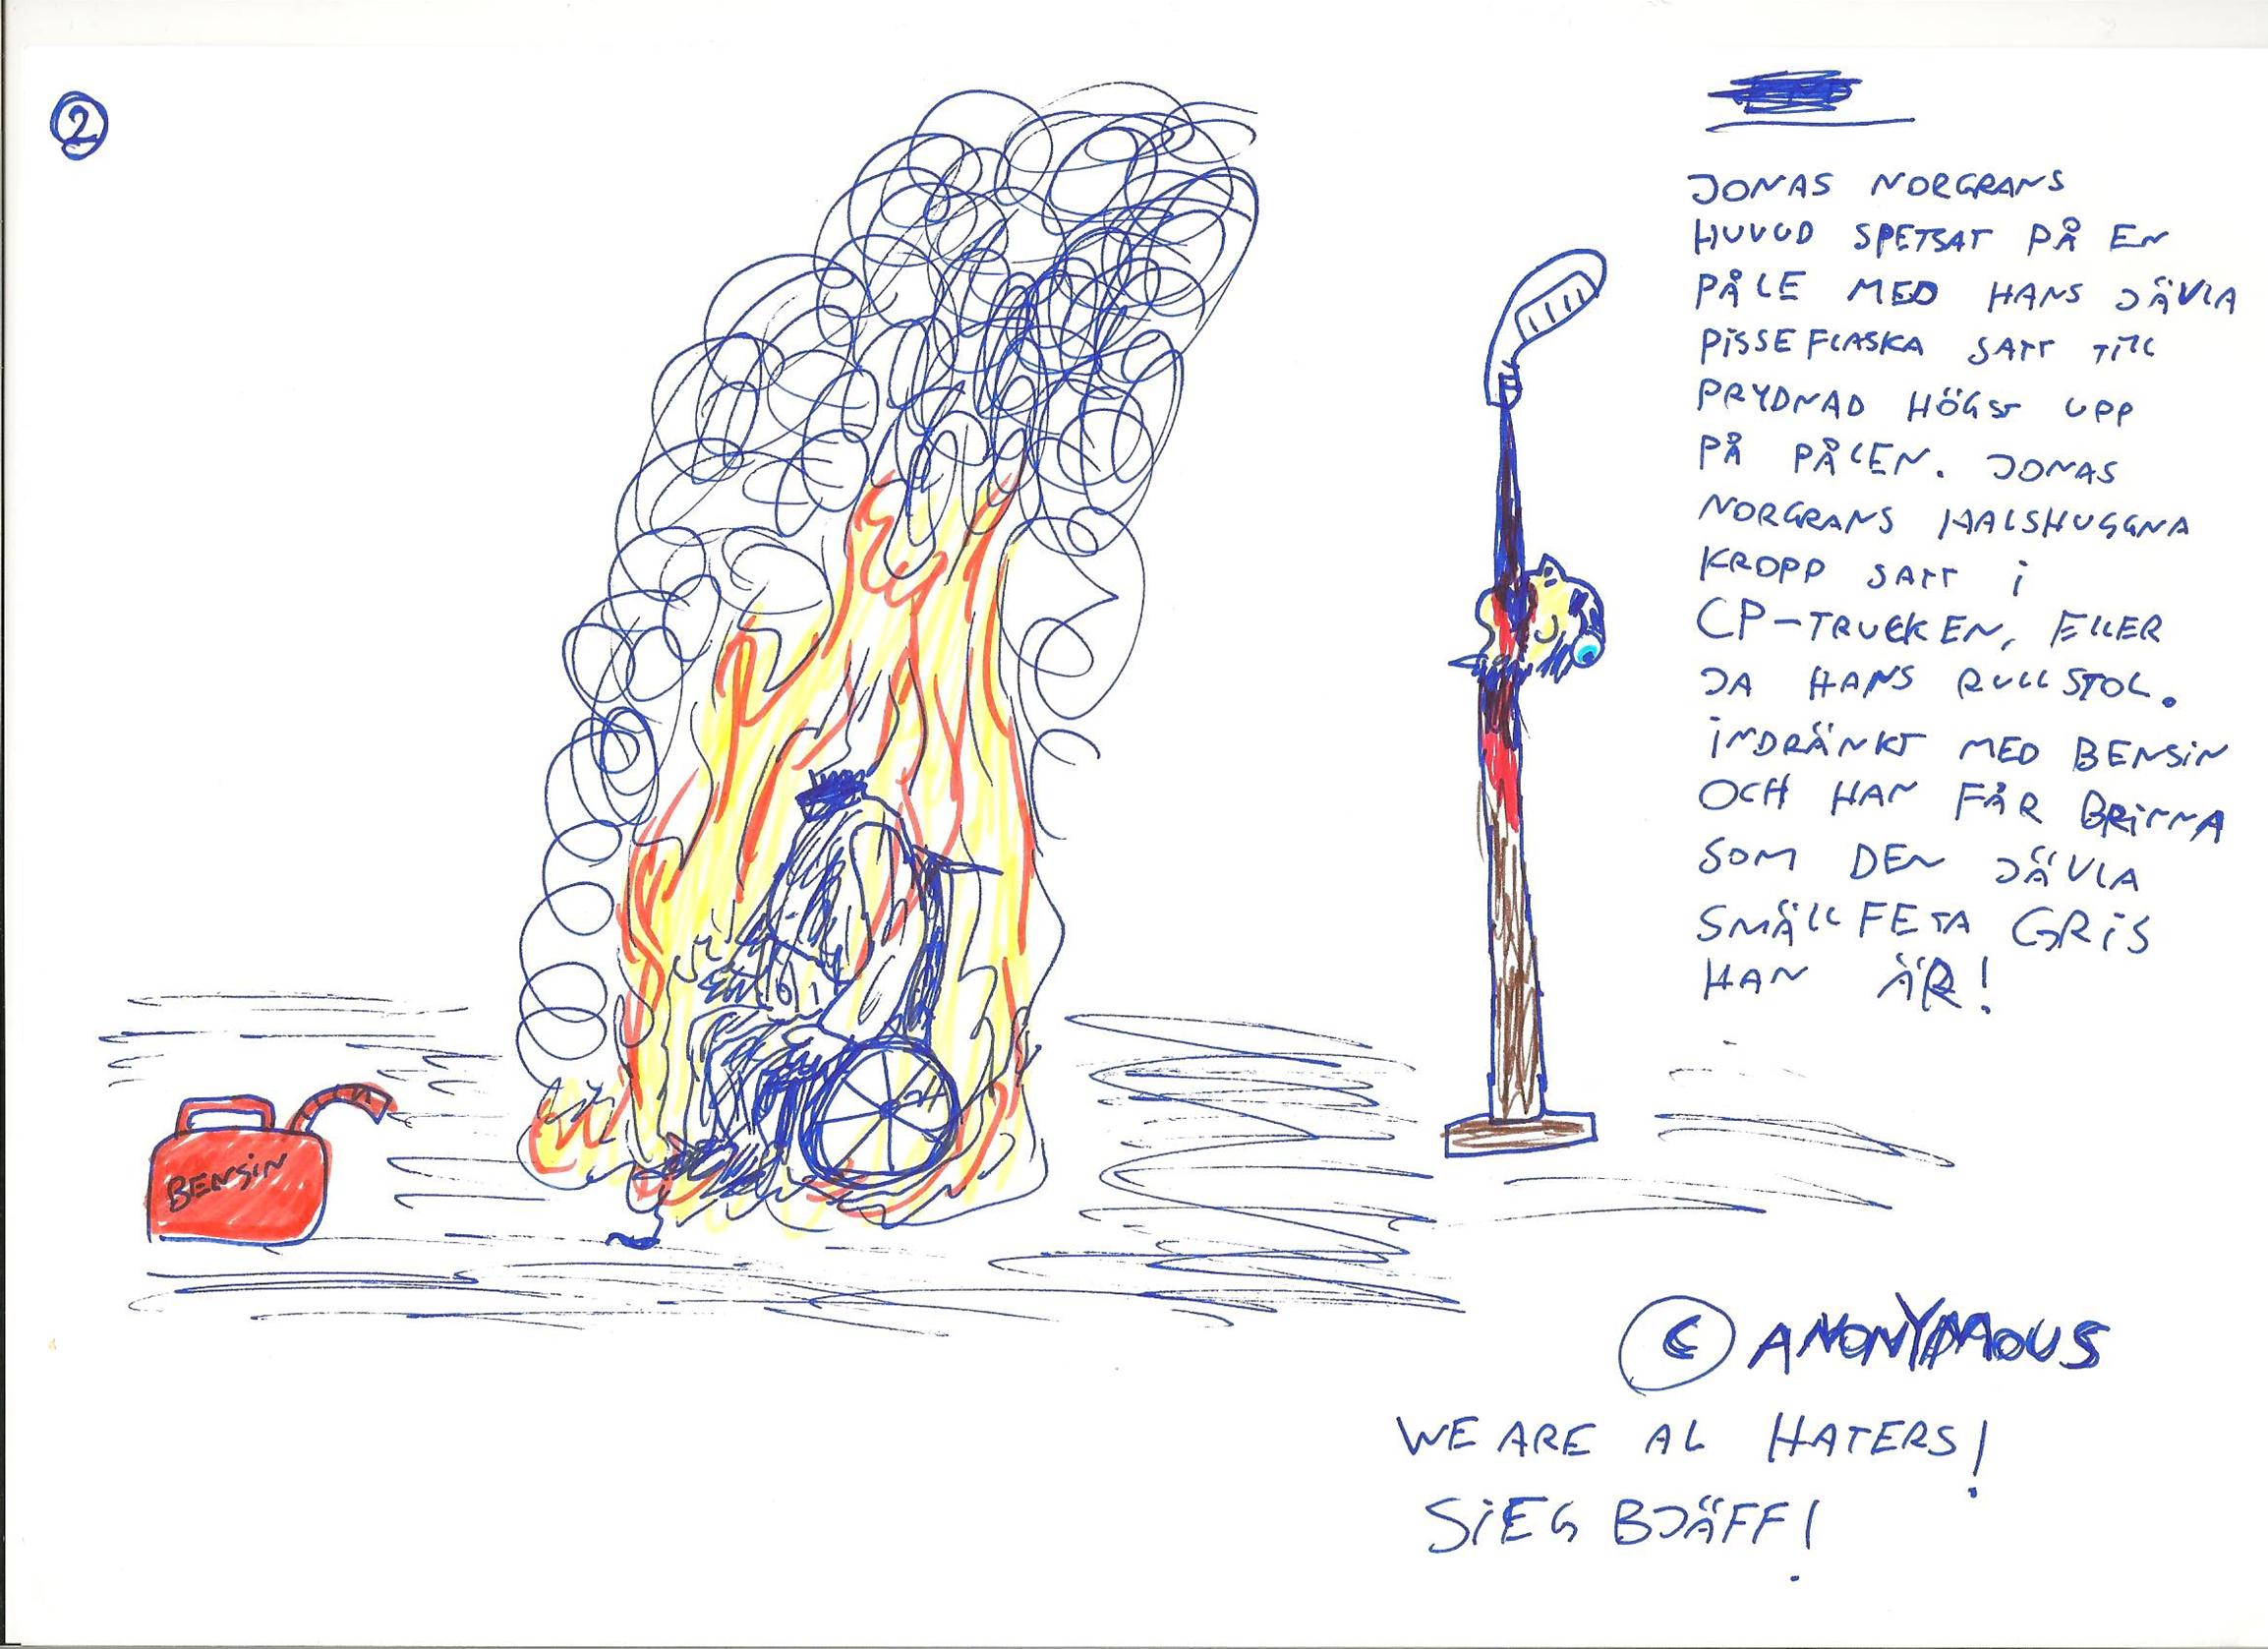 2
JONAS NORGRANS
HUVUD SPETSAT PÅ EN
PÅLE MED HANS JÄVLA
PISSEFLASKA SATT TILL
PRYDNAD HÖGST UPP
PÅ PÅLEN. JONAS
NORGRANS HALSHUGGNA
KROPP SATT i
CP-TRUCKEN, ELLER
JA HANS RULLSTOL.
INDRÄNKT MED BENSIN
OCH HAN FÅR BRINNA
SOM DEN JÄVLA
SMÄLLFETA GRIS
HAN ÄR!
BENSIN
© ANONYMOUS
WE ARE AL HATERS!
SIEG BJÄFF!